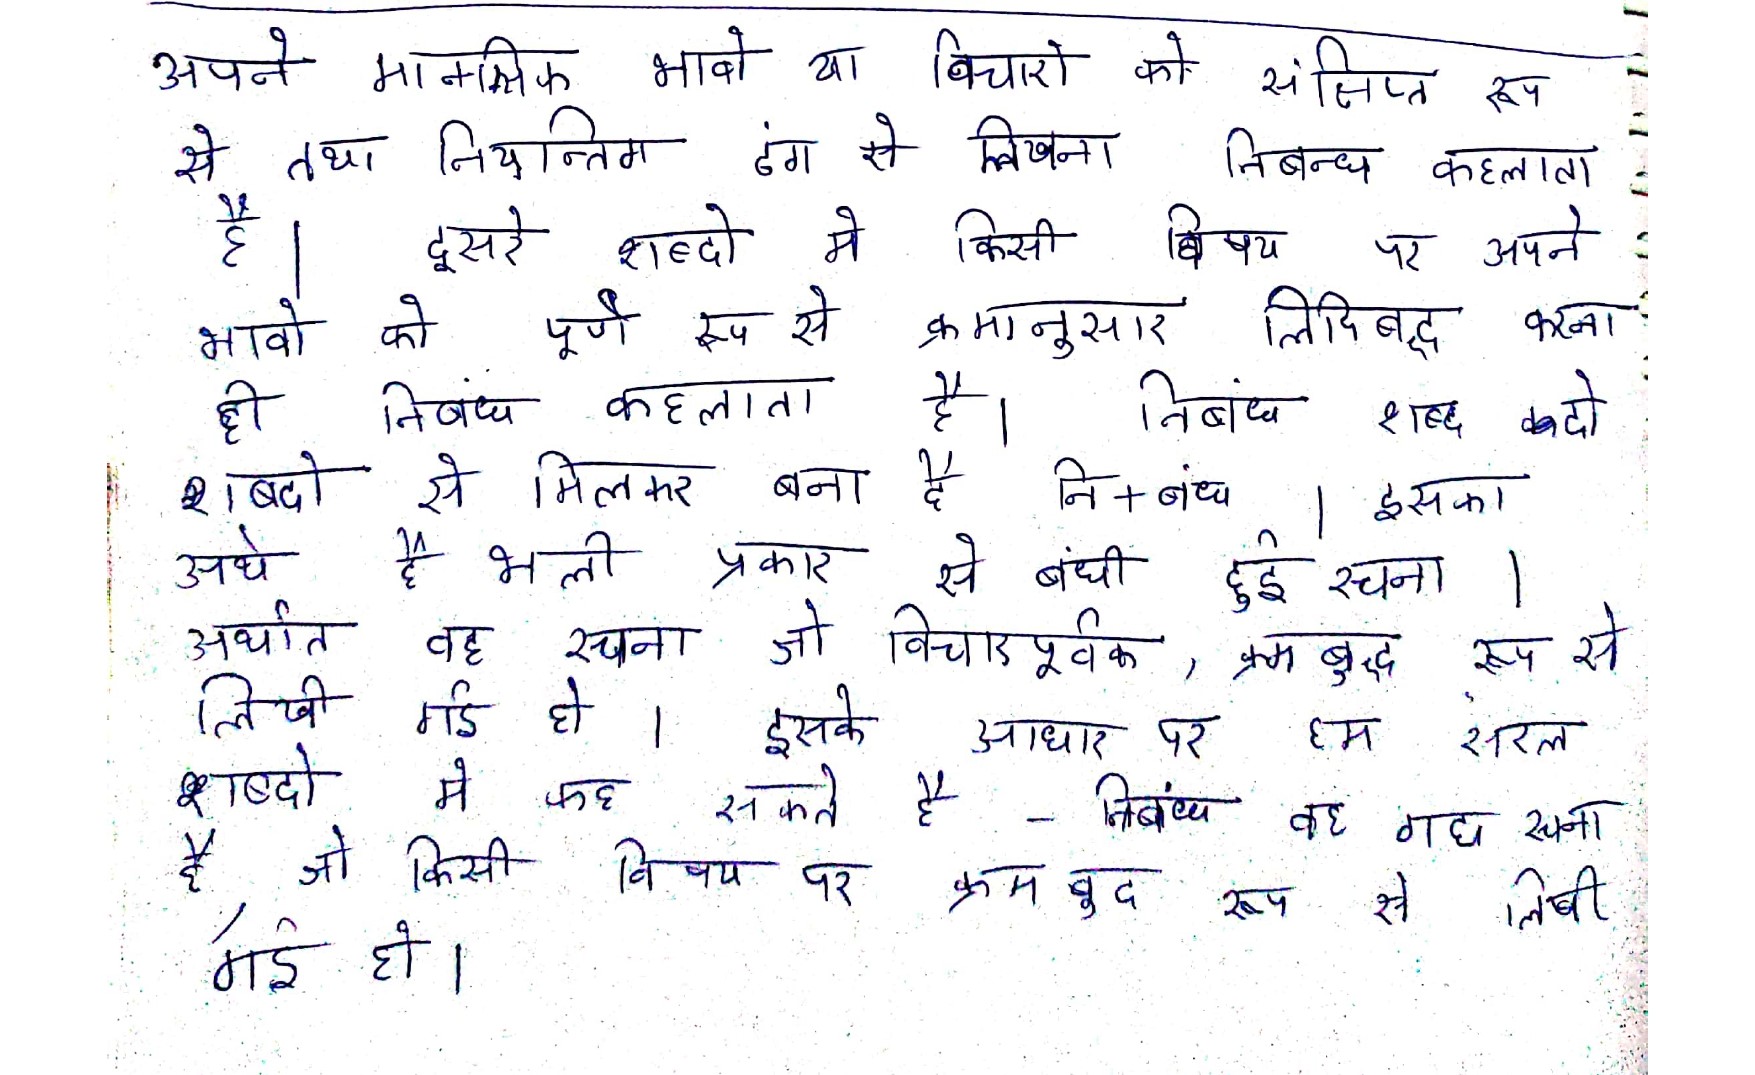 अपने मानसिक भावो या विचारो को संक्षिप्त रूप
से तथा नियन्त्रित ढंग से लिखना निबन्ध कहलाता
है । दूसरे शब्दो मे किसी विषय पर अपने
भावो को पूर्ण रूप से क्रमानुसार लिपिबद्ध करना
ही निबंध कहलाता है । निबंध शब्द दो
शब्दो से मिलकर बना है नि + बंध । इसका
अर्थ है भली प्रकार से बंधी हुई रचना ।
अर्थात वह रचना जो विचारपूर्वक , क्रम बद्ध रूप से
लिखी गई हो । इसके आधार पर हम सरल
शब्दो मे कह सकते है - निबंध वह गद्य रचना
है , जो किसी विषय पर क्रम बद्ध रूप से लिखी
गई हो ।